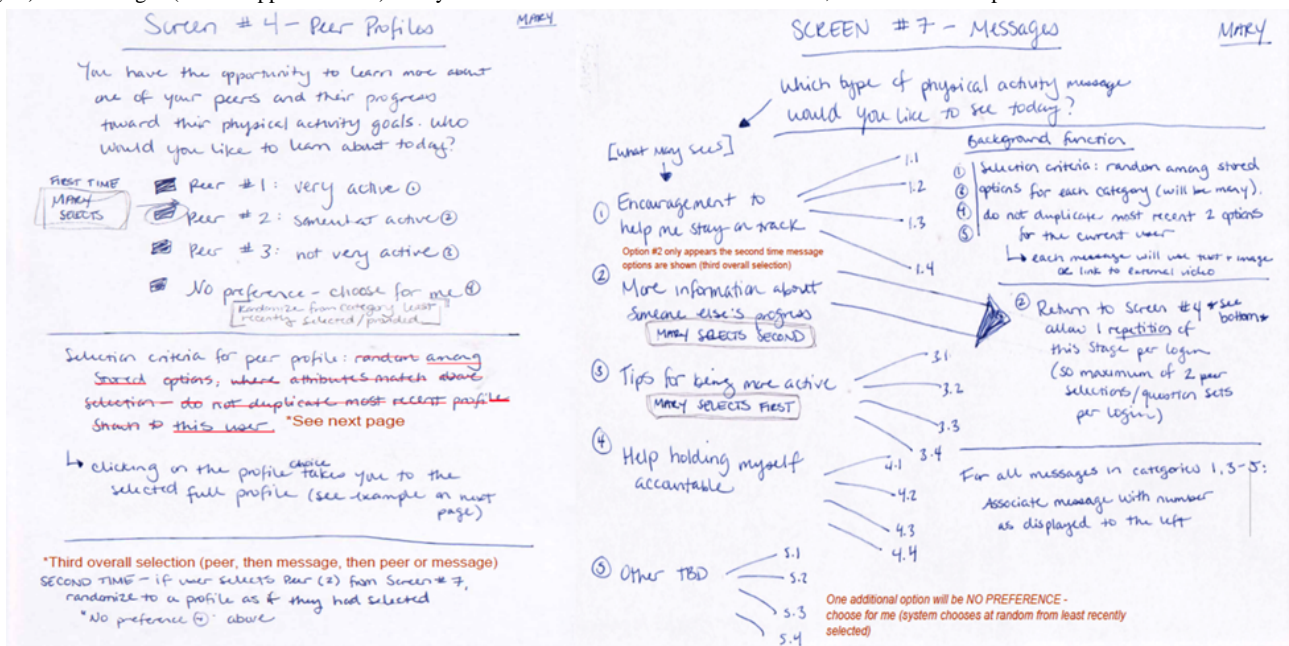 Screen #4 – Peer Profiles
MARY
You have the opportunity to learn more about
one of your peers and their progress
toward their physical activity goals. Who
would you like to learn about today?
FIRST TIME
MARY
SELECTS
Peer #1: very active ①
Peer #2: somewhat active ②
Peer #3: not very active ③
No preference – choose for me ④
Randomize from category least
recently selected/provided
Selection criteria for peer profile: random among
stored options, where attributes match above
selection – do not duplicate most recent profile
shown to this user.
*See next page
↳ clicking on the profile choice takes you to the
selected full profile (see example on next
page)
*Third overall selection (peer, then message, then peer or message)
SECOND TIME – if user selects Peer (2) from Screen #7,
randomize to a profile as if they had selected
"No preference ④" above
SCREEN #7 – Messages
MARY
Which type of physical activity message
would you like to see today?
[What Mary sees]
① Encouragement to
help me stay on track
1.1
1.2
1.3
1.4
Option #2 only appears the second time message
options are shown (third overall selection)
② More information about
someone else's progress
MARY SELECTS SECOND
③ Tips for being more active
MARY SELECTS FIRST
3.1
3.2
3.3
3.4
④ Help holding myself
accountable
4.1
4.2
4.3
4.4
⑤ Other TBD
5.1
5.2
5.3
5.4
Background function
① ③ ④ ⑤
Selection criteria: random among stored
options for each category (will be many).
do not duplicate most recent 2 options
for the current user
↳ each message will use text + image
or link to external video
② Return to Screen #4 *see
bottom*
allow 1 repetition of
this stage per login
(so maximum of 2 peer
selections/question sets
per login)
For all messages in categories 1, 3–5:
Associate message with number
as displayed to the left
One additional option will be NO PREFERENCE -
choose for me (system chooses at random from least recently
selected)